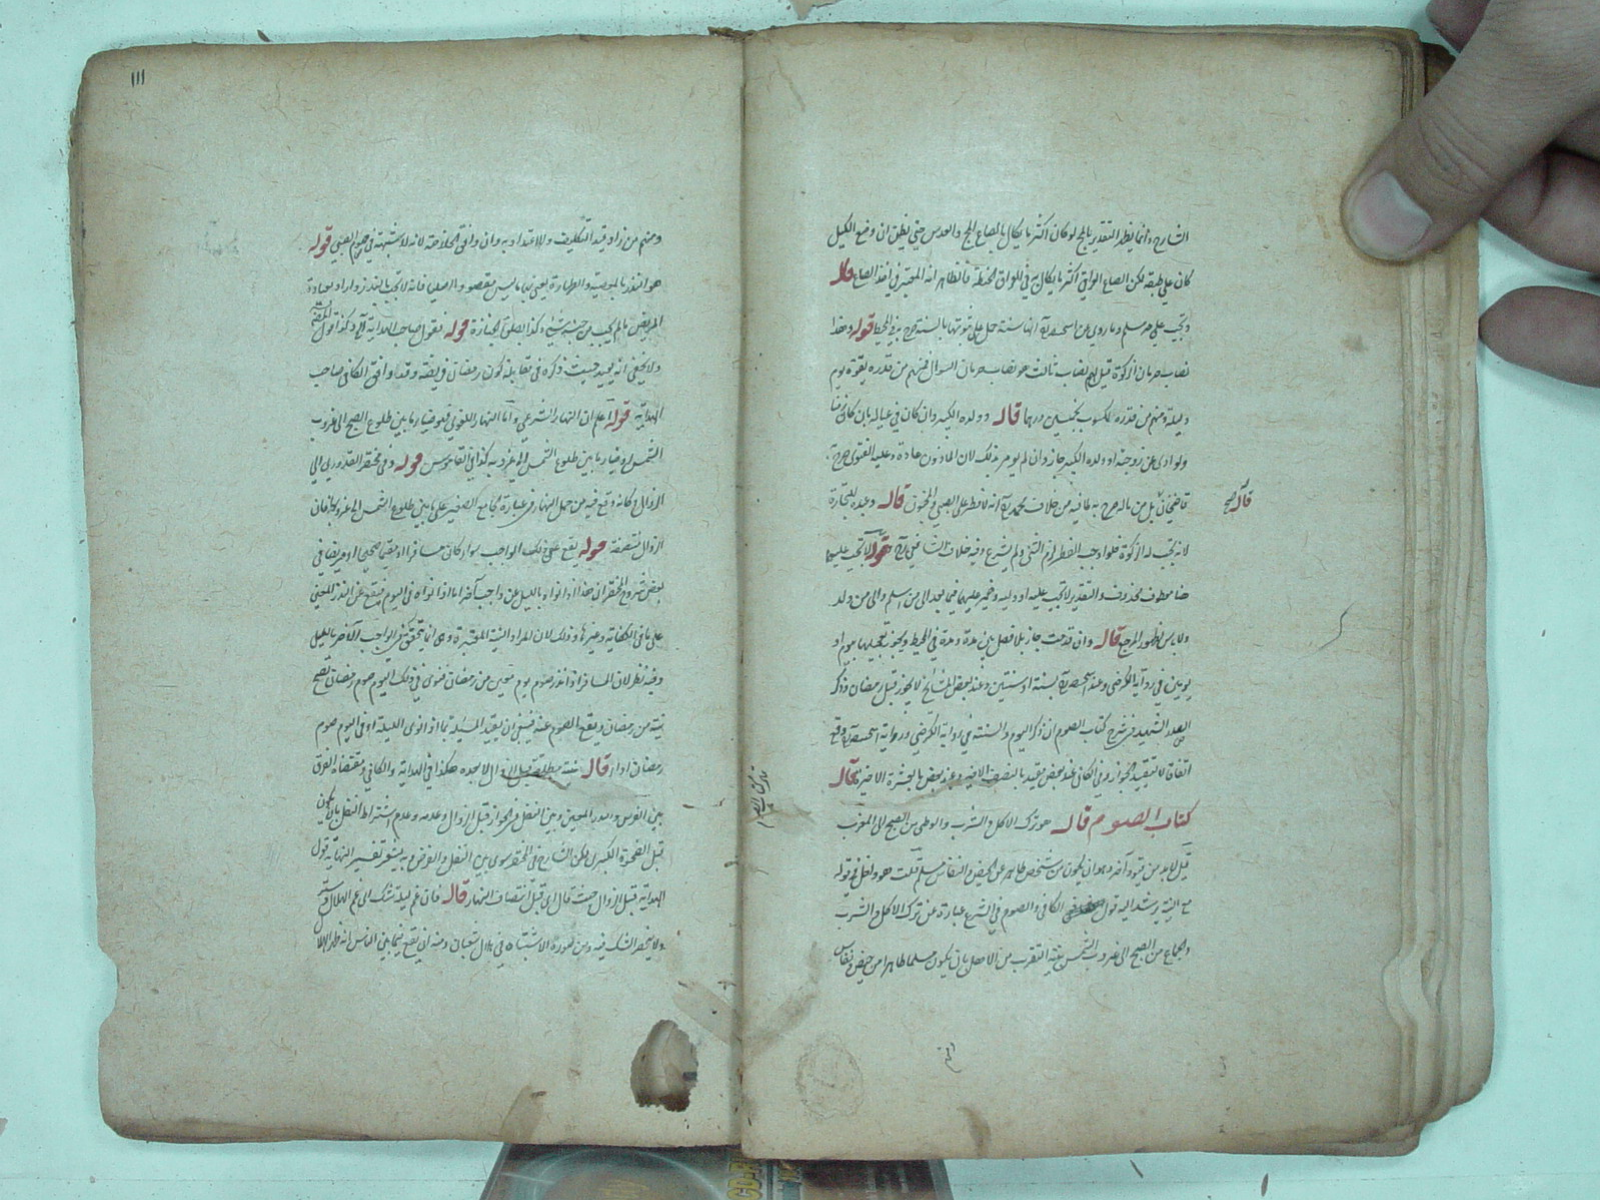 الشارح وانما يظهر التقدير بالحج لو كان اكثر ما يكال بالصاع الحج والعدس حتى يظن ان وضع الكيل
كان على طبقه لكن الصاع العراقي اكثر ما يكال به في العراق الحنطة فالظاهر انه المعتبر في اخذ الصاع قال
وتجب على حر مسلم وما روي عن انها سنة حمل على ثبوتها بالسنة صرح به في المحيط قوله وهذا
نصاب حرمان الزكوة قيل لهم نصاب ثالث هو نصاب حرمان السوال فمنهم من قدره بقوة يوم
وليلة ومنهم من قدره بخمسين درهما قال وولده الكبير وان كان في عياله بان كان
ولو ادى عن زوجته او ولده الكبير جاز وان لم يومر بذلك لان الماذون عادة وعليه الفتوى صرح
قال صح
قاضيخان بل من ماله صرح به خلاف محمد انه لا فطر على الصبي والمجنون قال وعبده للتجارة
لانه تجب له الزكوة فلو اوجب الفطر لزم الثنى ولم يشرع وفيه خلاف الشافعي قوله لا تجب عليهما
معطوف محذوف والتقدير لا تجب عليه او وليه وضمير عليهما فيما بعد الى من اسلم والى من ولد
ولا باس لظهور المرجع قال وان قدمت جاز بلا فصل بين مدة ومدة في المحيط ويجوز تعجيلها بيوم او
يومين في رواية الكرخي وعند بسنة او سنتين وعند بعض المشائخ لا يجوز قبل رمضان وذكر
الصدر الشهيد في شرح كتاب الصوم ان ذكر اليوم والسنة في رواية الكرخي ورواية وقع
اتفاقا لا لتقييد الجواز وفي الكافي عند بعض مقيد بالنصف الاخير وعند بعض بالعشرة الاخيرة قال
كتاب الصوم قال هو ترك الاكل والشرب والوطى من الصبح الى المغرب
قيل لا بد من قيد آخر وهو ان يكون من شخص طاهر عن الحيض والنفاس مسلم قلت هو داخل في قوله
مع النية يرشد اليه قول الكافي والصوم في الشرع عبارة عن ترك الاكل والشرب
والجماع من الصبح الى غروب الشمس بنية التقرب من الاهل بان يكون مسلما طاهرا من حيض ونفاس
كتاب الصوم
١١١
ومنهم من زاد قيد التكليف ولا اعتداد به وان وافق الخلاصة لانه لا شبهة في صوم الصبي قوله
هو النذر بالمعصية والطهارة يعني بها ما ليس مقصودا فانه لا تجب بالنذر واراد بعيادة
المريض ما لم يجب من جنسه شيء وكذا الصلوة الجنازة قوله فقول صاحب الهداية
ولا يخفى انه يؤيد حيث ذكره في مقابلة كون رمضان فريضة وقد وافق الكافي صاحب
الهداية قوله اعلم ان النهار الشرعي واما النهار اللغوي فهو ضياء ما بين طلوع الصبح الى غروب
الشمس او ضياء ما بين طلوع الشمس الى غروبه كذا في القاموس قوله وفي مختصر القدوري الى
الزوال وكانه وقع فيه من حمل النهار في عبارة الجامع الصغير على ما بين طلوع الشمس الى غروبه فان
الزوال منتصفه قوله يقع على ذلك الواجب سواء كان مسافرا او مقيما صحيحا او مريضا في
بعض شروح المختصر ان هذا اذا نواه بالليل عن واجب آخر اما اذا نواه في اليوم فيقع عن النذر المعين
على ما في الكفاية وغيرها وذلك لان المراد النية المعتبرة وهي انما يتحقق في الواجب الآخر بالليل
وفيه نظر لان المسافر اذا نذر صوم يوم معين من رمضان فنوى في ذلك اليوم صوم رمضان تصح
نيته من رمضان ويقع الصوم عنه فينبغي ان يقيد المسئلة بما اذا نوى الليلة او في اليوم صوم
رمضان اداء قال بنية مطلقة قبل الزوال لا بعده هكذا في الهداية والكافي ومقتضاه الفرق
بين الفرض والنذر المعين وبين النفل في الجواز قبل الزوال وعدمه وعدم اشتراط النفل بان يكون
قبل الضحوة الكبرى لكن الشارح في المختصر سوى بين النفل والفرض وبه يشعر تفسير النهاية قول
الهداية قبل الزوال حيث قال اي قبل انتصاف النهار قال فان غم ليلة شك اي غم الهلال ستر
ولا ينحصر الشك فيه ومن صورة الاشتباه في هلال شعبان ومنه ان يقع فيما بين الناس انه هلال